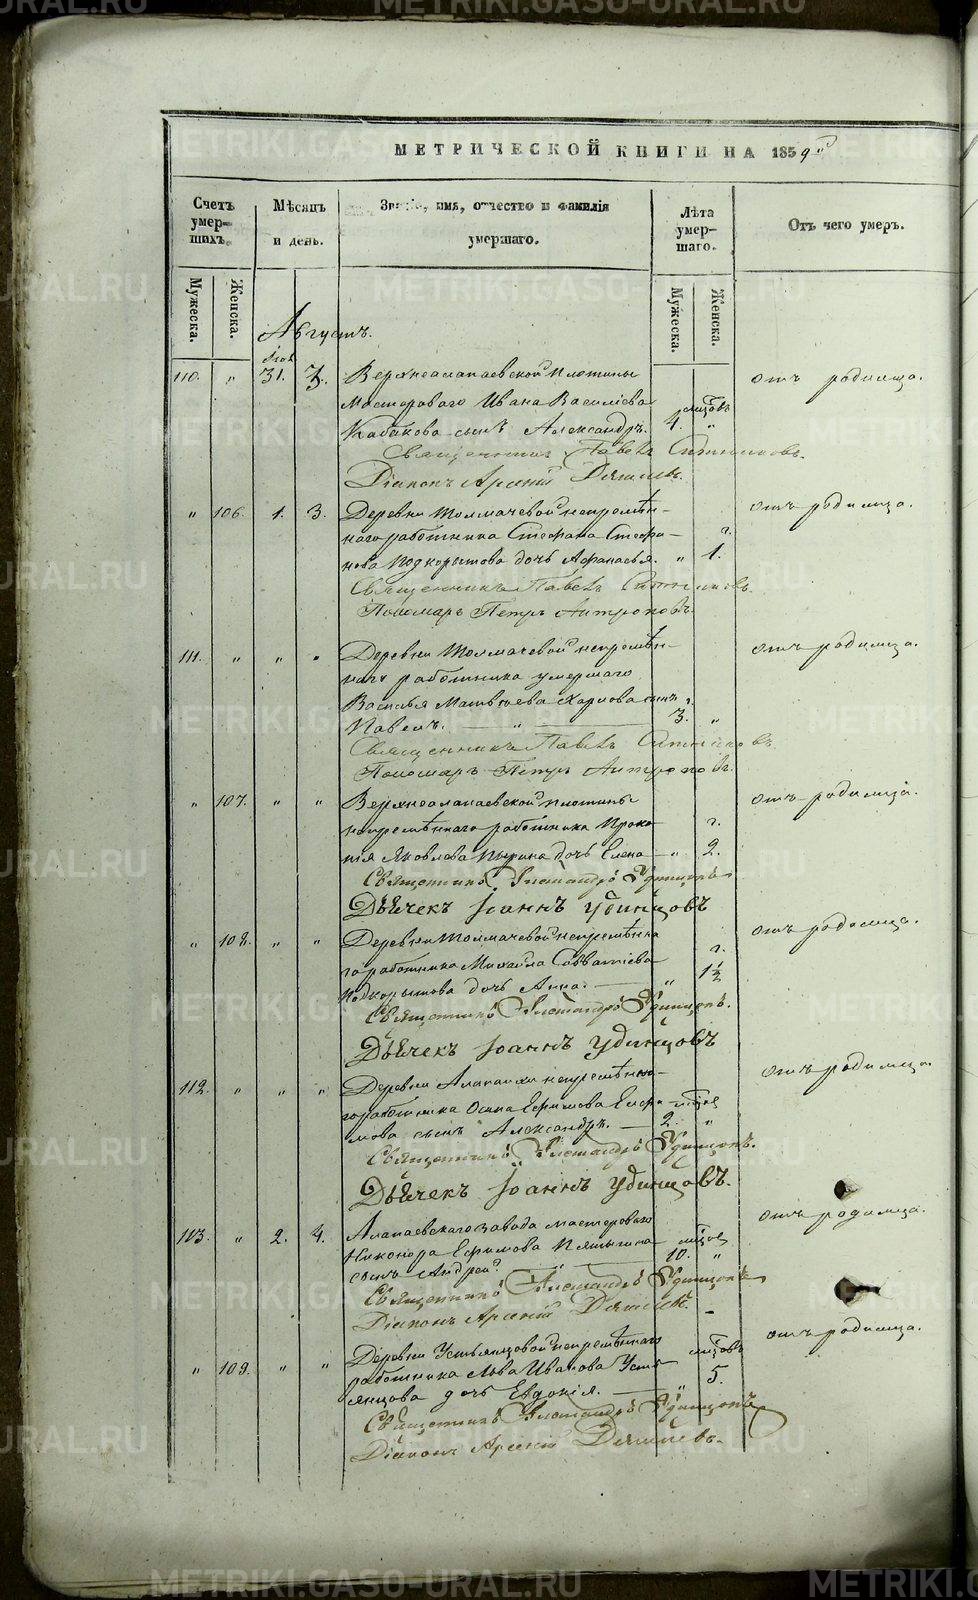 METRIKI.GASO-URAL.RU
МЕТРИЧЕСКОЙ КНИГИ НА 1859й
Счетъ умер-шихъ.
Мѣсяцъ и день.
Званіе, имя, отчество и фамилія умершаго.
Лѣта умер-шаго.
Отъ чего умеръ.
Мужеска.
Женска.
Мужеска.
Женска.
Августъ.
110. " 31. 3. Верхнеалапаевской плотины отъ родимца.
мастероваго Ивана Василіева мцовъ
Кабакова сынъ Александръ. 4. "
Священникъ Павелъ Ситниковъ.
Діаконъ Арсеній Дягилевъ.
" 106. 1. 3. Деревни Толмачевой непремѣн- отъ родимца.
наго работника Стефана Стефа- г.
нова Подкорытова дочь Афанасья. " 1.
Священникъ Павелъ Ситниковъ.
Пономарь Петръ Антроповъ.
111. " " " Деревни Толмачевой непремѣн- отъ родимца.
наго работника умершаго
Василья Матвѣева сынъ г.
Павелъ. " 3. "
Священникъ Павелъ Ситниковъ.
Пономарь Петръ Антроповъ.
" 107. " " Верхнеалапаевской плотины отъ родимца.
непремѣннаго работника Проко- г.
пія Яковлева дочь Елена " 2.
Священникъ Александръ Удинцовъ
Дьячекъ Іоаннъ Удинцовъ
" 108. " " Деревни Толмачевой непремѣнна отъ родимца.
го работника Михаила Савватіева г.
Подкорытова дочь Анна. " 1½
Священникъ Александръ Удинцовъ.
Дьячекъ Іоаннъ Удинцовъ
112. " " " Деревни Алапаихи непремѣнна- отъ родимца.
го работника Осипа Ефимова мцов
сынъ Александръ. 2. "
Священникъ Александръ Удинцовъ.
Дьячекъ Іоаннъ Удинцовъ.
113. " 2. 4. Алапаевскаго завода мастероваго отъ родимца.
Никонора Ефимова мцов
сынъ Андрей. 10. "
Священникъ Александръ Удинцовъ
Діаконъ Арсеній Дягилевъ.
" 109. " " Деревни Устьянцовой непремѣннаго отъ родимца.
работника Льва Иванова Усть мцовъ
янцова дочь Евдокія. " 5.
Священникъ Александръ Удинцовъ
Діаконъ Арсеній Дягилевъ.